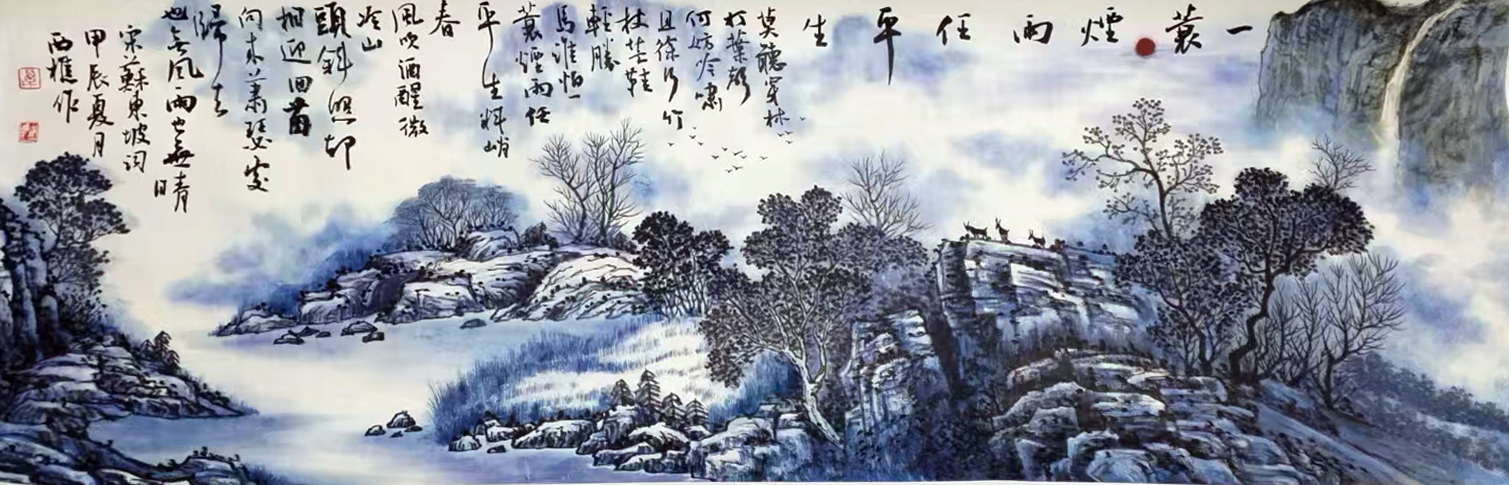 一蓑煙雨任平生
莫聽穿林
打葉聲
何妨吟嘯
且徐行竹
杖芒鞋
輕勝
馬誰怕一
蓑煙雨任
平生料峭
春
風吹酒醒微
冷山
頭斜照却
相迎回首
向來蕭瑟處
歸去
也無風雨也無晴
宋蘇東坡词
甲辰夏月
西樵作